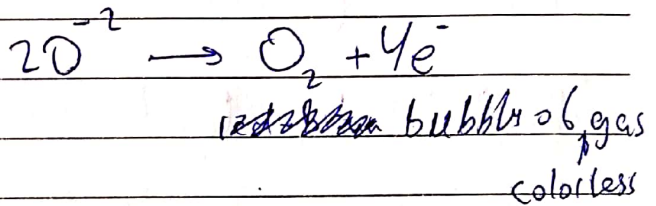 2O⁻² → O₂ + 4e⁻
bubbls of gas
colorless